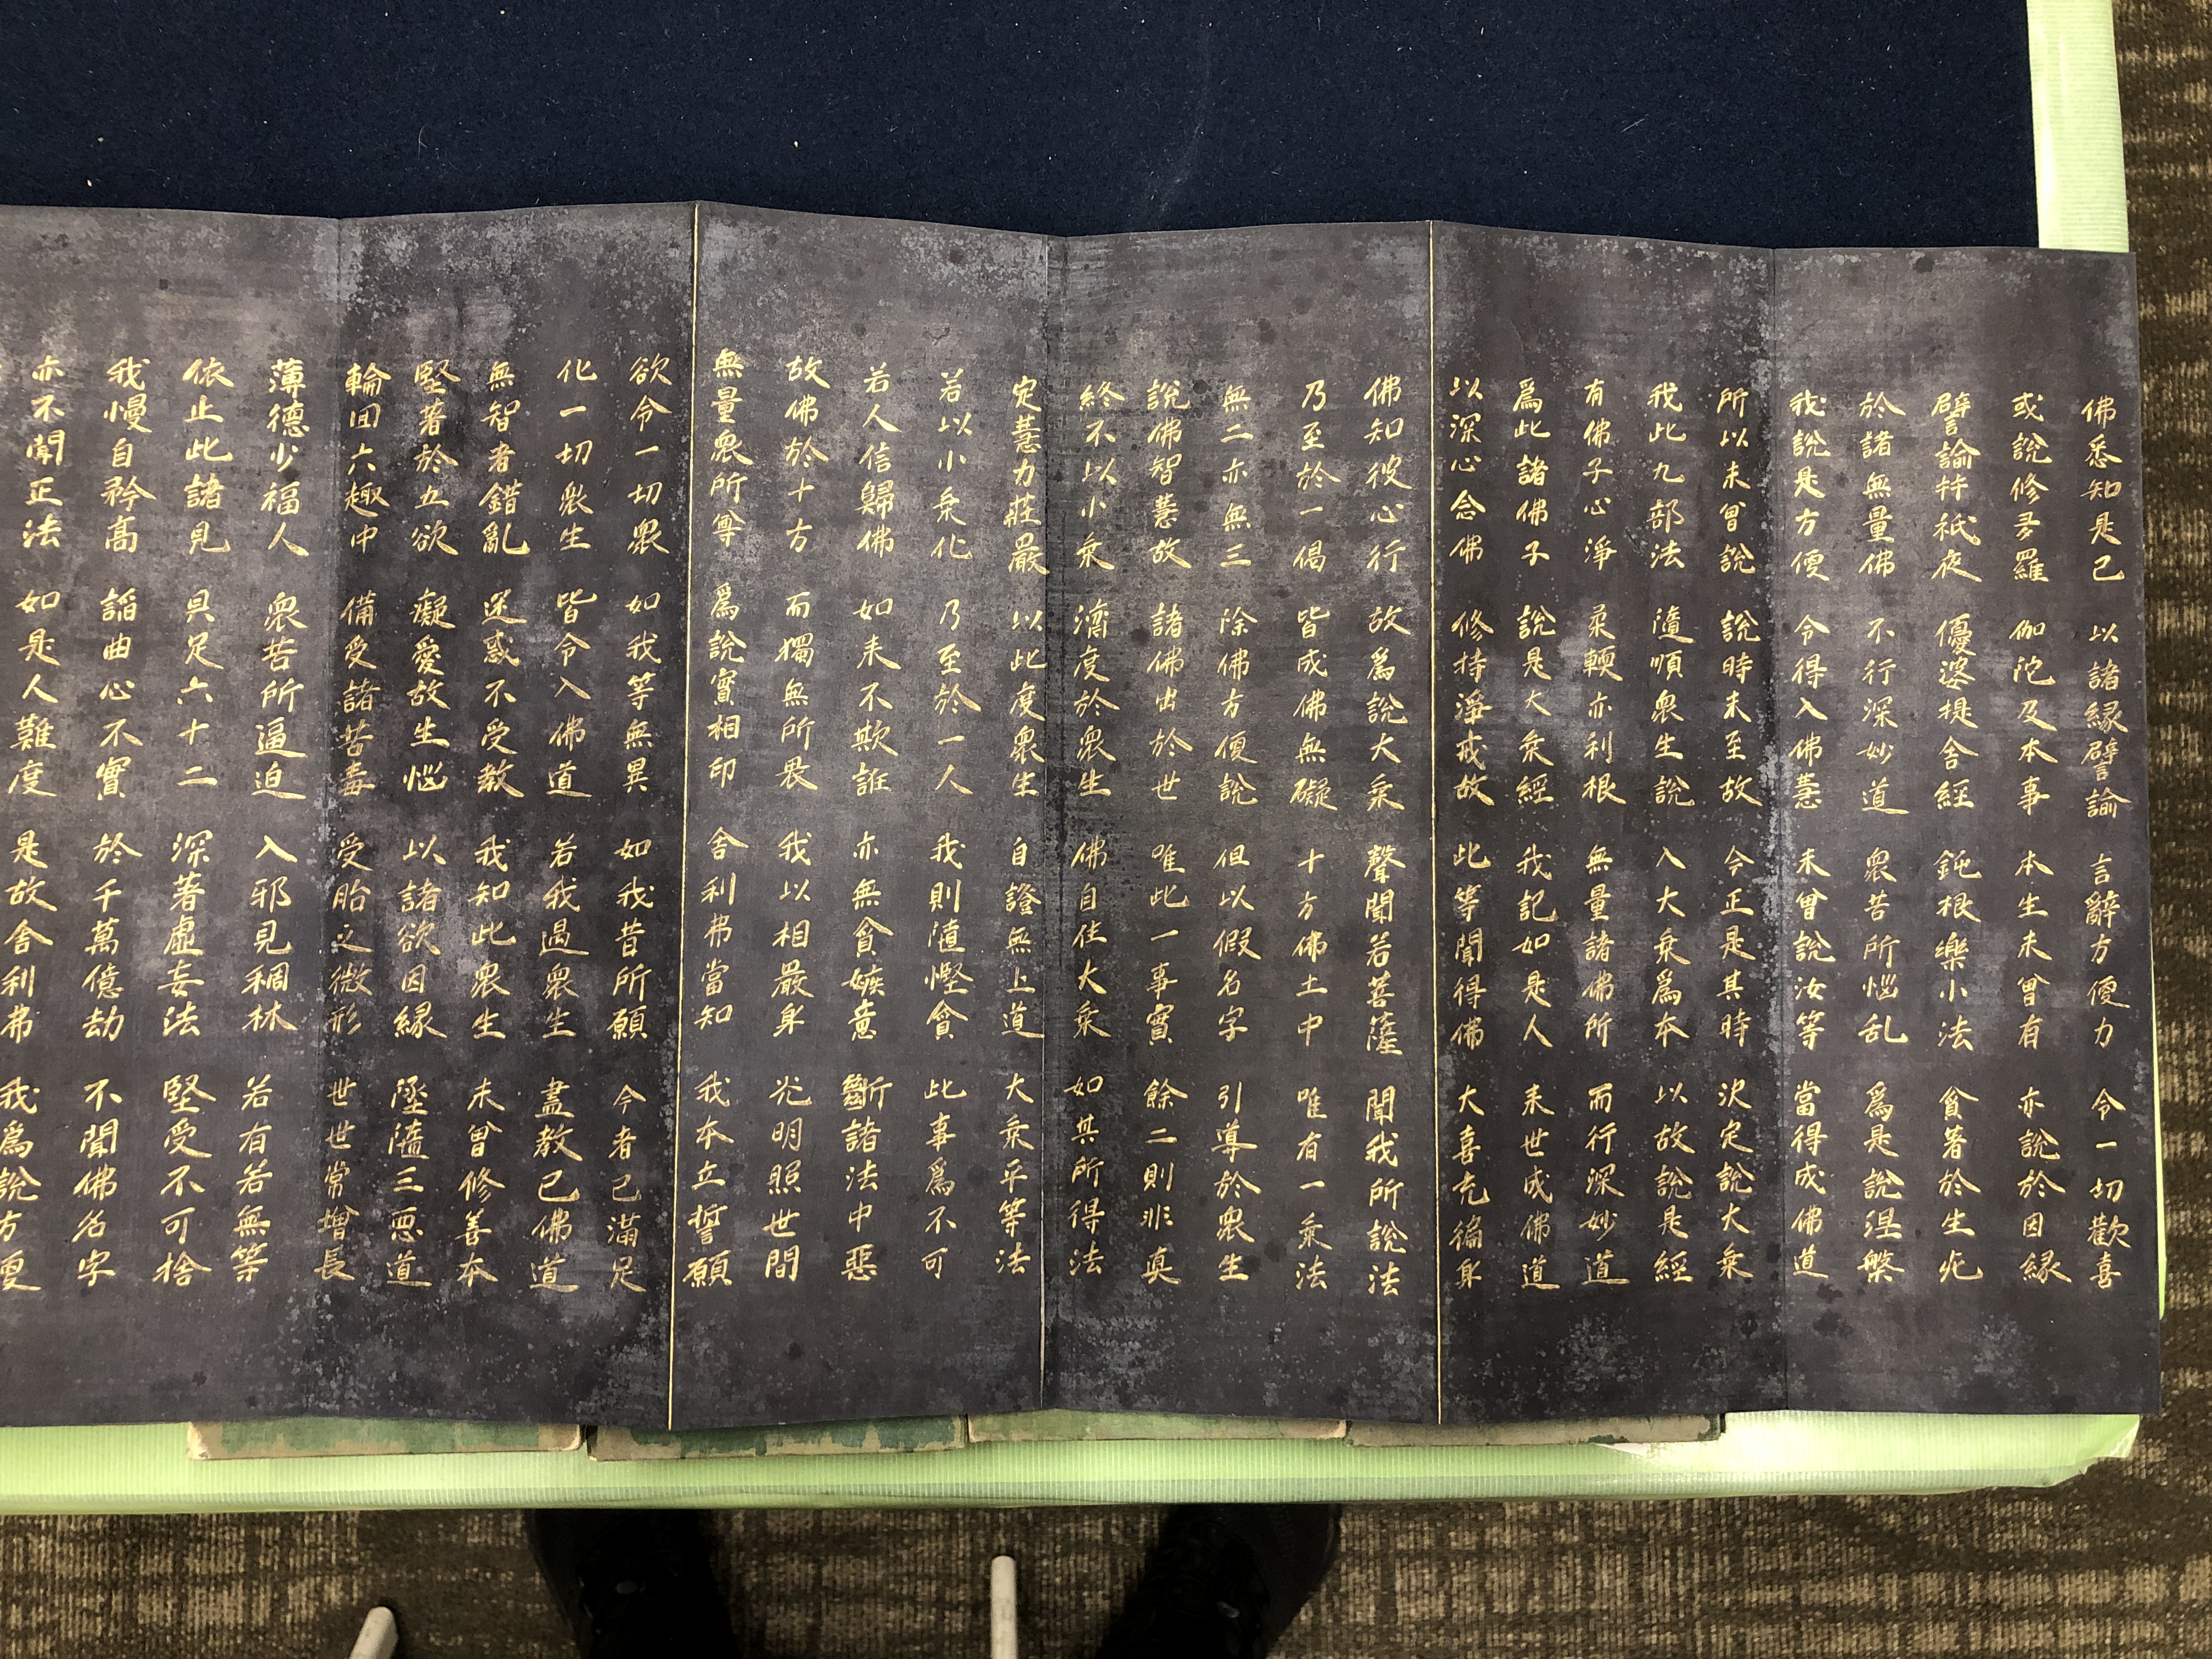 佛悉知是已 以諸縁譬諭 言辭方便力 令一切歡喜
或說修多羅 伽陀及本事 本生未曾有 亦說於因縁
譬諭并祇夜 優婆提舍經 鈍根樂小法 貪著於生死
於諸無量佛 不行深妙道 衆苦所惱乱 爲是說涅槃
我說是方便 令得入佛慧 未曾說汝等 當得成佛道
所以未曾說 說時未至故 今正是其時 決定說大乗
我此九部法 隨順衆生說 入大乗爲本 以故說是經
有佛子心淨 柔輭亦利根 無量諸佛所 而行深妙道
爲此諸佛子 說是大乗經 我記如是人 来世成佛道
以深心念佛 修持淨戒故 此等聞得佛 大喜充徧身
佛知彼心行 故爲說大乗 聲聞若菩薩 聞我所說法
乃至於一偈 皆成佛無礙 十方佛土中 唯有一乗法
無二亦無三 除佛方便說 但以假名字 引導於衆生
說佛智慧故 諸佛出於世 唯此一事實 餘二則非真
終不以小乗 濟度於衆生 佛自住大乗 如其所得法
定慧力莊嚴 以此度衆生 自證無上道 大乗平等法
若以小乗化 乃至於一人 我則墮慳貪 此事爲不可
若人信歸佛 如来不欺誑 亦無貪嫉意 斷諸法中惡
故佛於十方 而獨無所畏 我以相嚴身 光明照世間
無量衆所尊 爲說實相印 舍利弗當知 我本立誓願
欲令一切衆 如我等無異 如我昔所願 今者已滿足
化一切衆生 皆令入佛道 若我遇衆生 盡教已佛道
無智者錯亂 迷惑不受教 我知此衆生 未曾修善本
堅著於五欲 癡愛故生惱 以諸欲因縁 墜墮三惡道
輪回六趣中 備受諸苦毒 受胎之微形 世世常增長
薄德少福人 衆苦所逼迫 入邪見稠林 若有若無等
依止此諸見 具足六十二 深著虛妄法 堅受不可捨
我慢自矜高 諂曲心不實 於千萬億劫 不聞佛名字
亦不聞正法 如是人難度 是故舍利弗 我爲說方便